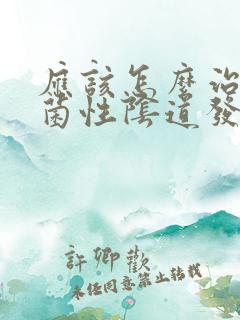 應該怎麼治
菌性陰道發
許卿歡
未任同意禁止轉載